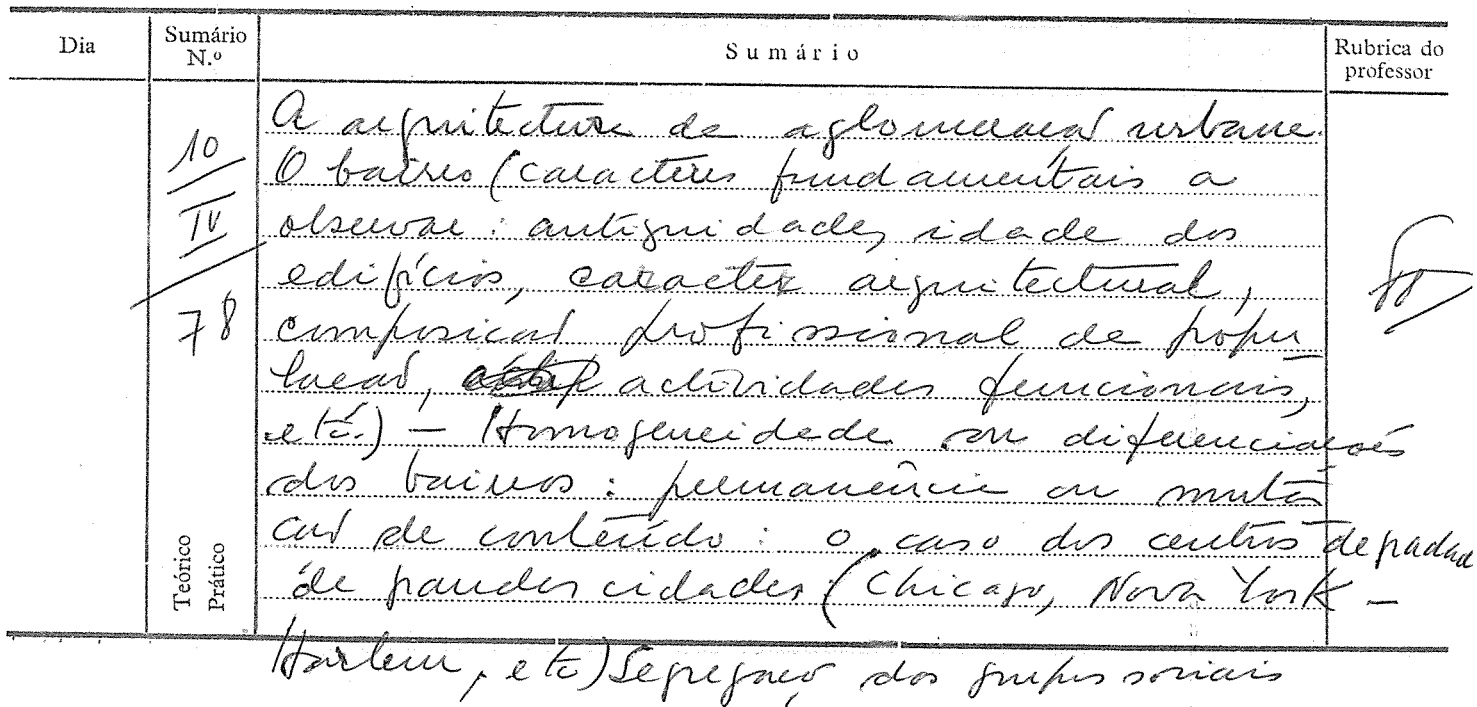 Dia
Sumário N.º
Sumário
Rubrica do professor
10
IV
78
A arquitectura da aglomeração urbana.
O bairro (caracteres fundamentais a
observar: antiguidade, idade dos
edifícios, caracter arquitectural,
composição profissional da popu
lação, actividades funcionais,
etc.) — Homogeneidade ou diferenciações
dos bairros: permanência ou muta
ção de conteúdo: o caso dos centros degradad
de grandes cidades (Chicago, Nova York —
Harlem, etc) Segregação dos grupos sociais
Teórico
Prático